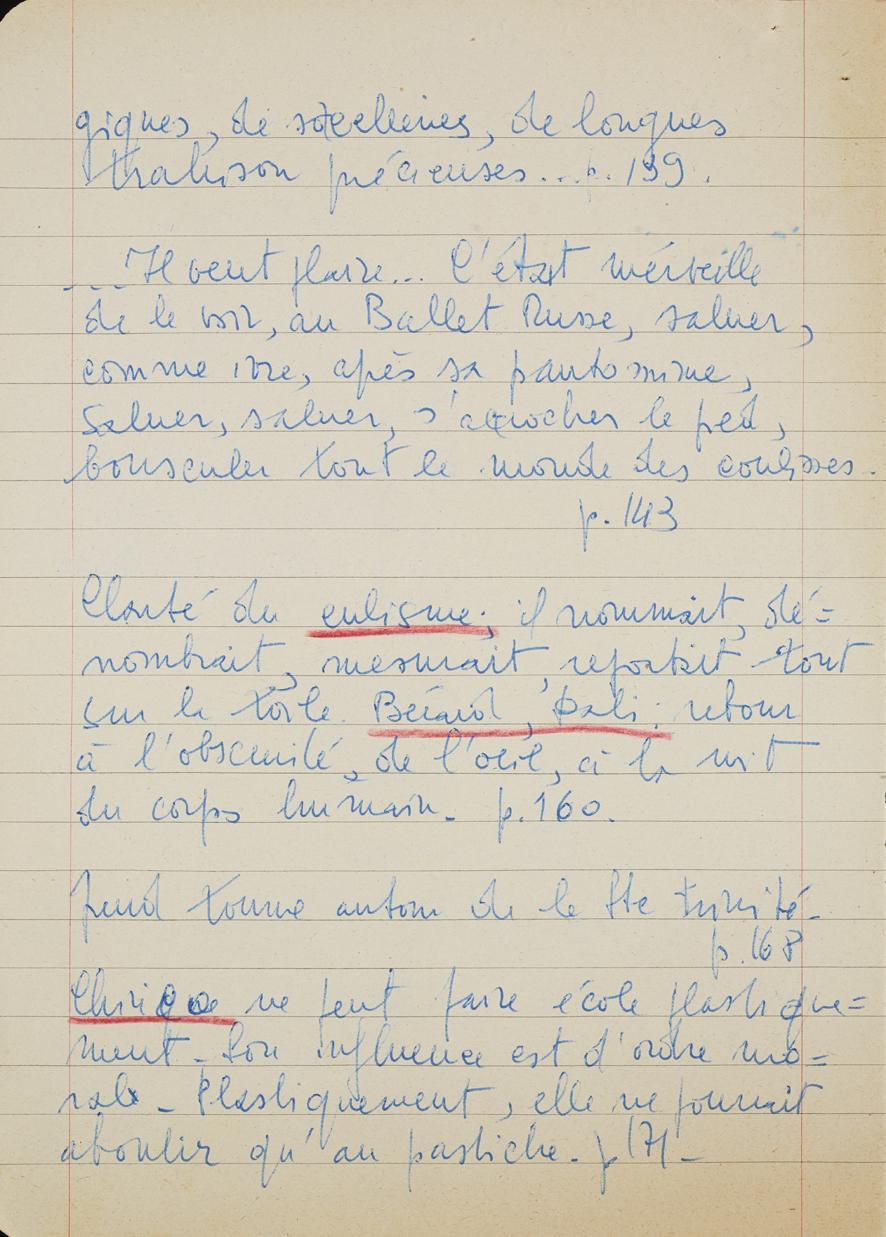 gigues, de sorcelleries, de longues
trahison précieuses... p. 139.
...Il veut plaire... C'était merveille
de le voir, au Ballet Russe, saluer,
comme ivre, après sa pantomime,
saluer, saluer, s'accrocher le pied,
bousculer tout le monde des coulisses.
p. 143
Clarté du cubisme; il nommait, dé=
nombrait, mesurait, reportait tout
sur la toile. Bérard, Dali: retour
à l'obscurité, de l'oeil, à la nuit
du corps humain. p. 160.
Freud tourne autour de la Ste trinité.
p. 168
Chirico ne peut faire école plastique=
ment. Son influence est d'ordre mo=
rale - Plastiquement, elle ne pourrait
aboutir qu'au pastiche. p. 171 -